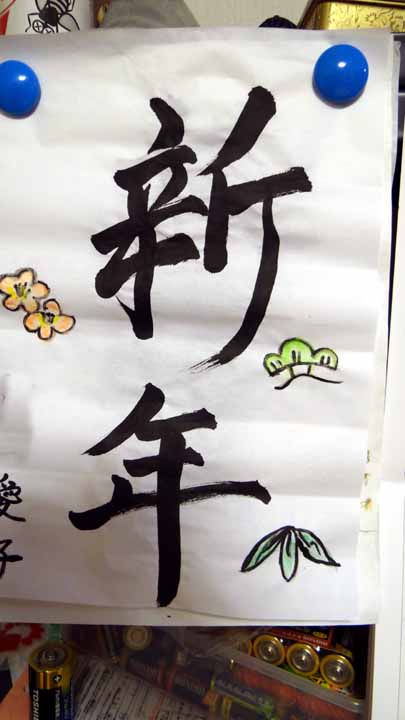 新年
愛子
TOSHIBA
ALKALINE